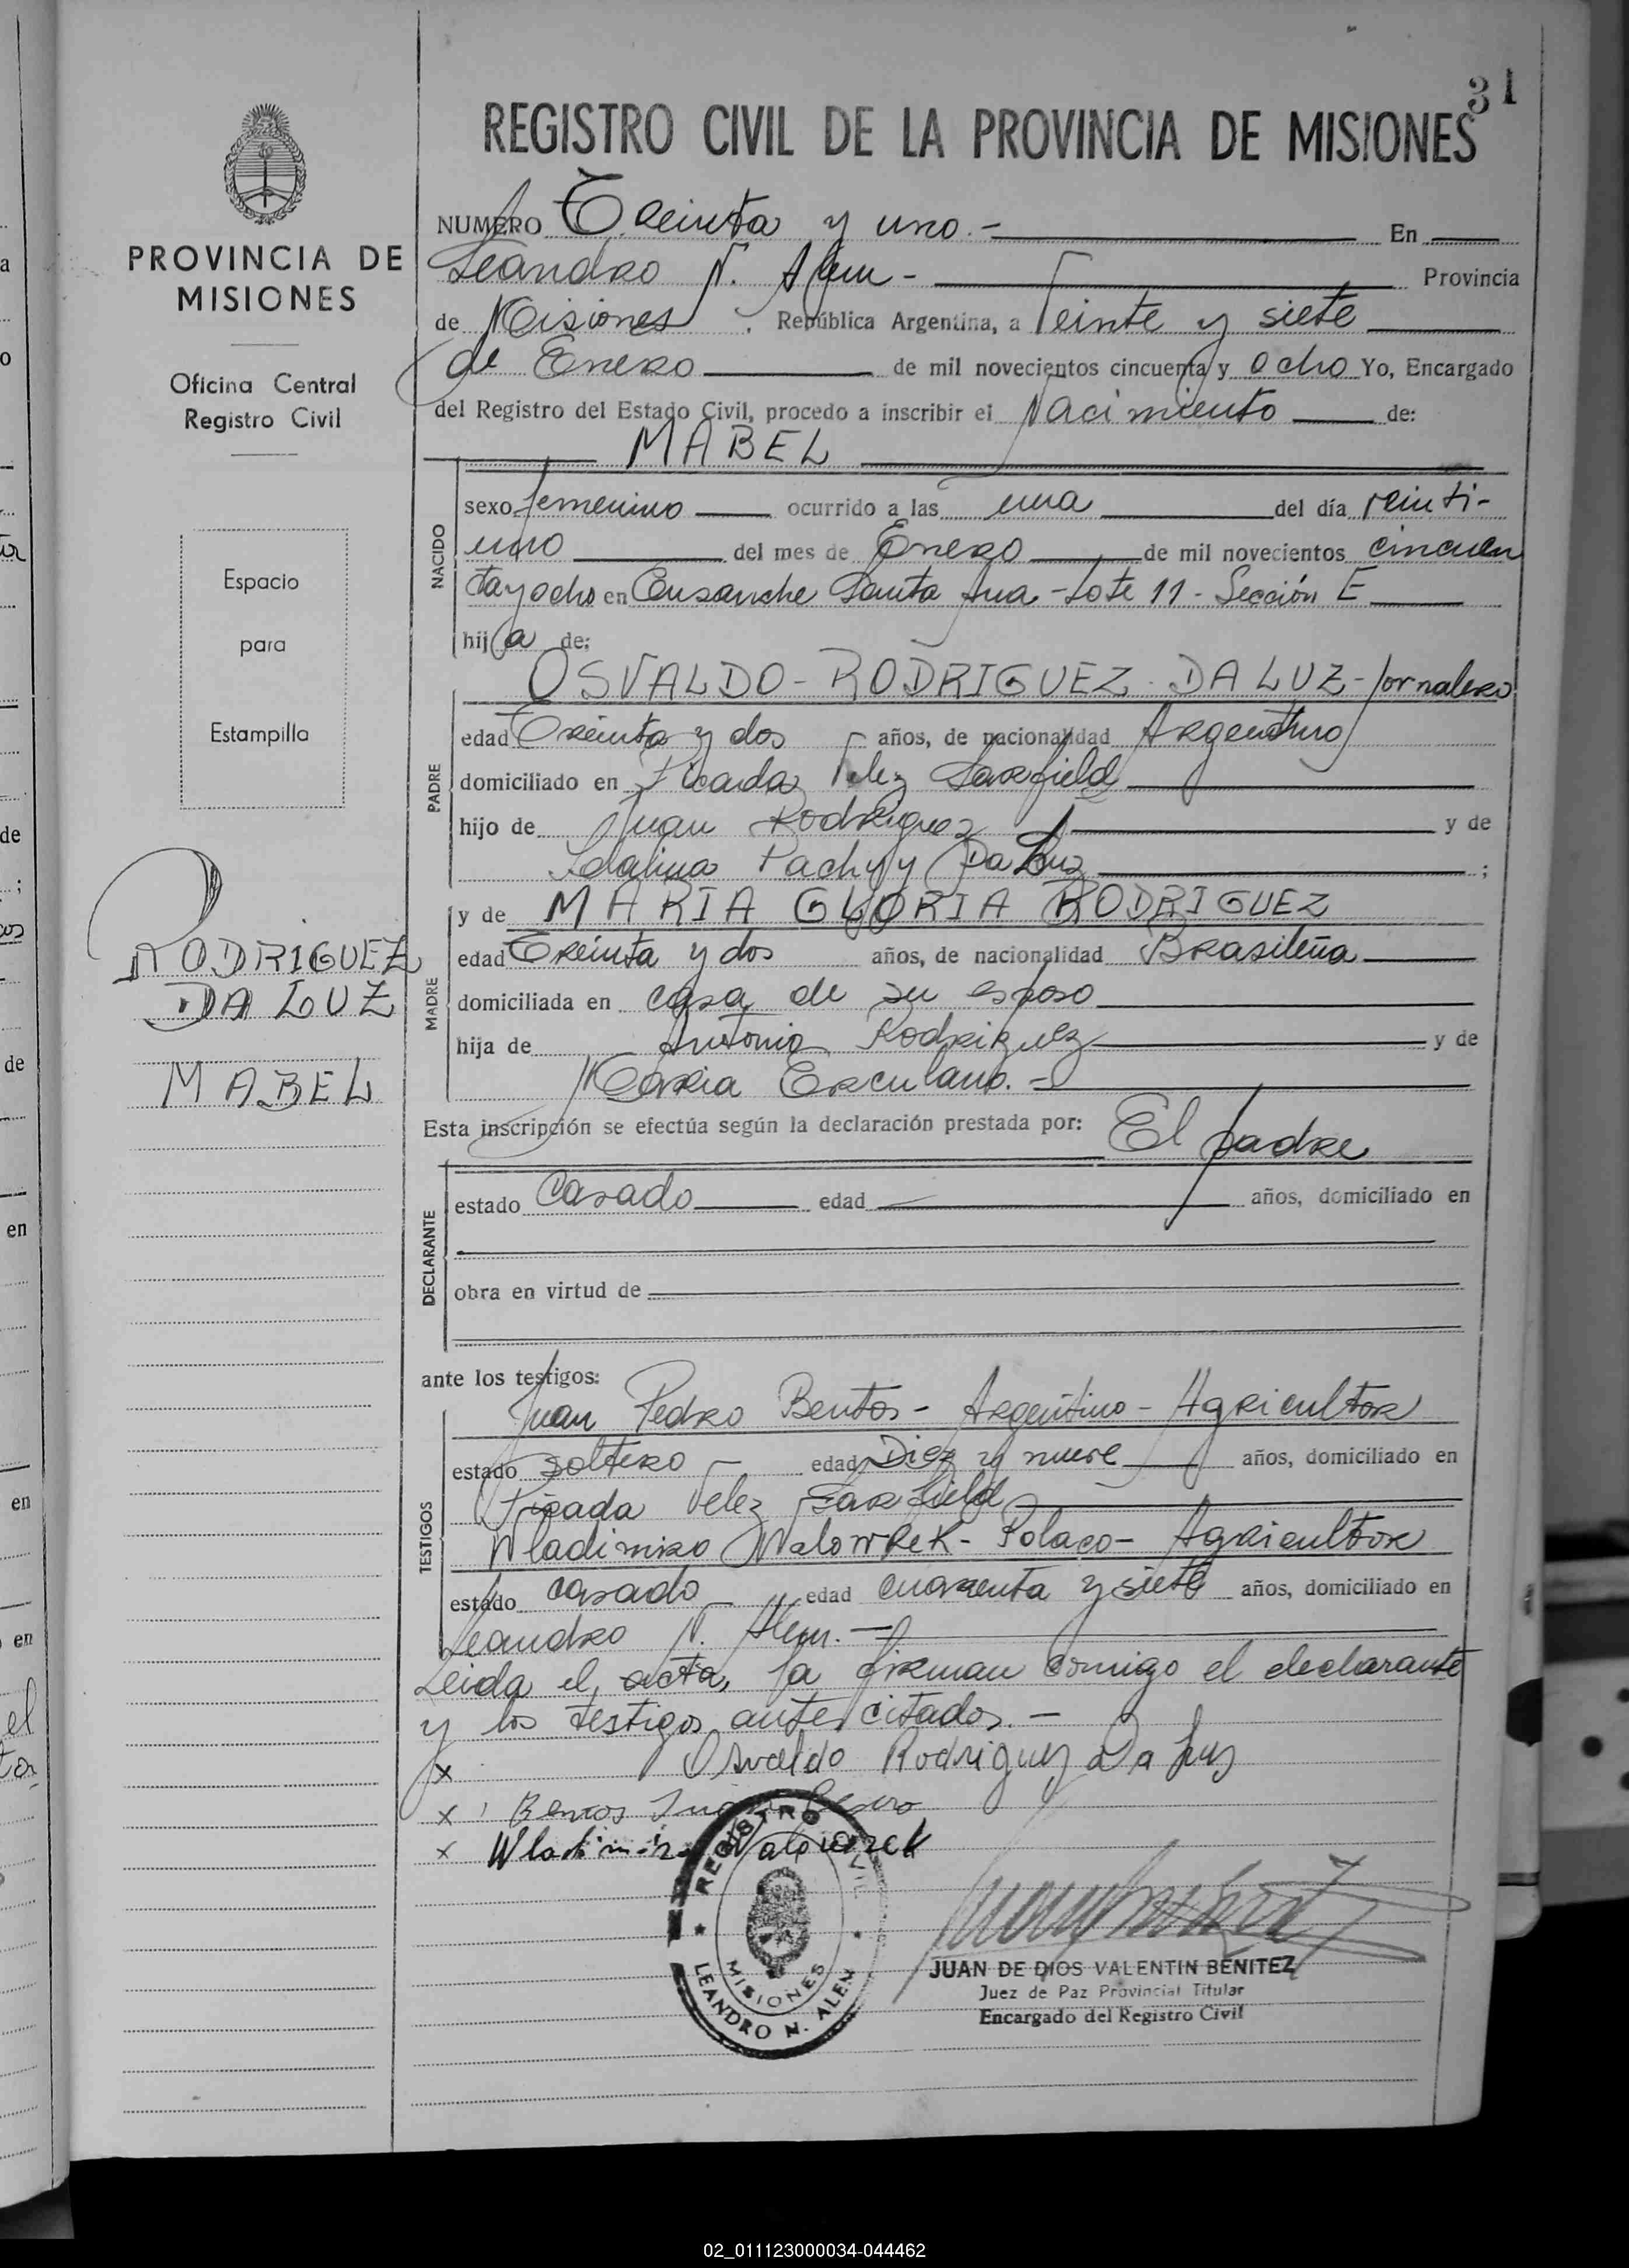 31
REGISTRO CIVIL DE LA PROVINCIA DE MISIONES
PROVINCIA DE
MISIONES
Oficina Central
Registro Civil
Espacio
para
Estampilla
RODRIGUEZ
DA LUZ
MABEL
NUMERO Treinta y uno.- En
Leandro N. Alem - Provincia
de Misiones, República Argentina, a Veinte y siete
de Enero de mil novecientos cincuenta y ocho Yo, Encargado
del Registro del Estado Civil, procedo a inscribir el Nacimiento de:
MABEL
NACIDO
sexo femenino ocurrido a las una del día veinti-
uno del mes de Enero de mil novecientos cincuen
ta y ocho en Ensanche Santa Ana - Lote 11 - Sección E
hija de:
PADRE
OSVALDO - RODRIGUEZ - DA LUZ - Jornalero
edad Treinta y dos años, de nacionalidad Argentino
domiciliado en Picada Velez Sarsfield
hijo de Juan Rodriguez y de
Idalina Da Luz ;
MADRE
y de MARIA GLORIA RODRIGUEZ
edad Treinta y dos años, de nacionalidad Brasileña
domiciliada en casa de su esposo
hija de Antonio Rodriguez y de
Maria Erculano. -
Esta inscripción se efectúa según la declaración prestada por: El padre
DECLARANTE
estado Casado edad años, domiciliado en
obra en virtud de
ante los testigos:
TESTIGOS
Juan Pedro Bentos - Argentino - Agricultor
estado soltero edad Diez y nueve años, domiciliado en
Picada Velez Sarsfield
Wladimiro - Polaco - Agricultor
estado casado edad cuarenta y siete años, domiciliado en
Leandro N. Alem. -
Leida el acta, la firman comigo el declarante
y los testigos antes citados. -
x Osvaldo Rodriguez Da Luz
x Bentos Juan Pedro
x Wladimir
REGISTRO CIVIL
MISIONES
LEANDRO N. ALEM
JUAN DE DIOS VALENTIN BENITEZ
Juez de Paz Provincial Titular
Encargado del Registro Civil
02_011123000034-044462